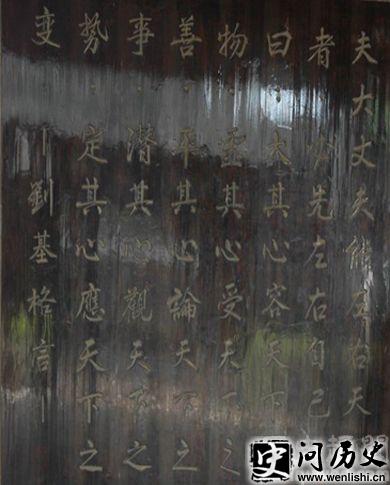 夫大丈夫能左右天
者必先左右自己
曰：大其心容天下
物：虚其心受天下之
善：平其心論天下之
事：潜其心觀天下之
勢：定其心應天下之
变—劉基格言—
史问历史
www.wenlishi.cn